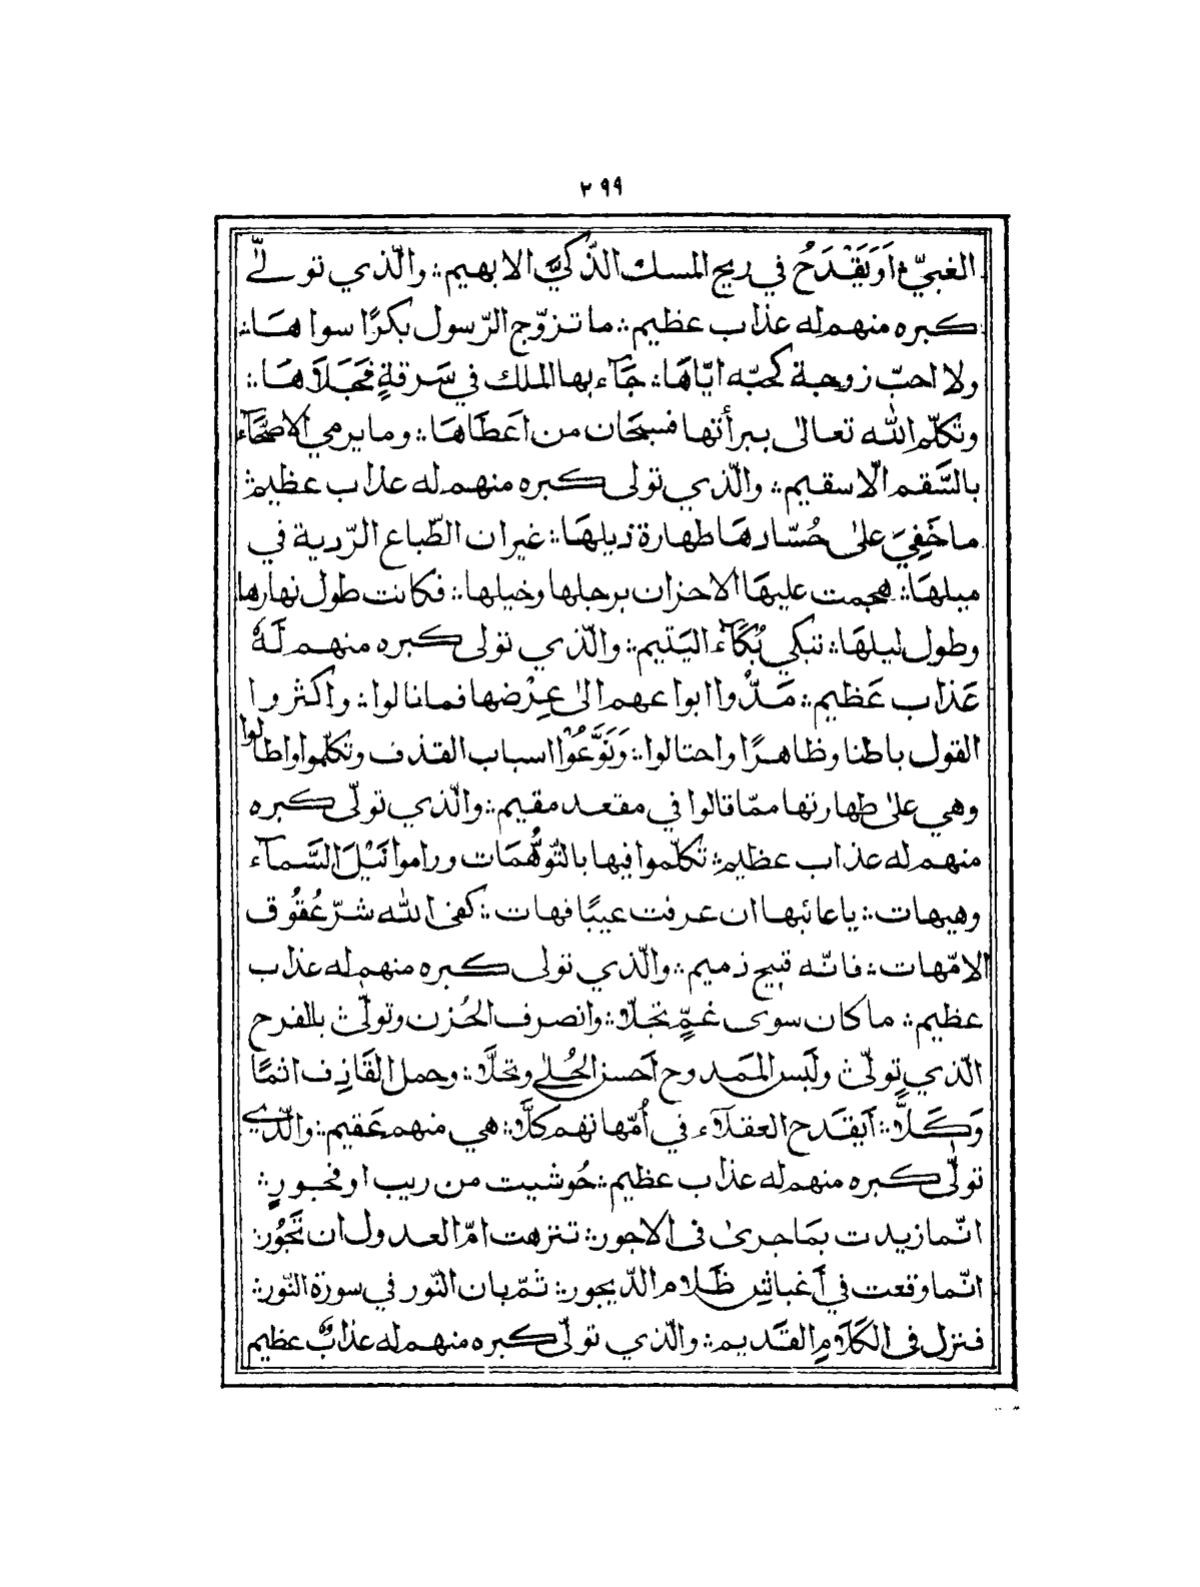 ٢٩٩
الغبيّ ءاَوَيَقْدَحُ في ريح المسك الذّكيّ الابهيم ؞ والّذي تولّٰى
كبره منهم له عذاب عظيم ؞ ما تزوّج الرّسول بكرًا سواهَا ؞
ولا احبّ زوجة كحبّه ايّاهَا ؞ جَآء بها الملك في سَرقةٍ فجَلاهَا ؞
وتكلّم الله تعالى ببرأتها فسبحَان من اَعطَاهَا ؞ وما يرمي الاصحَّآء
بالسَّقم الّا سقيم ؞ والّذي تولى كبره منهم له عذاب عظيم ؞
ما خَفِيَ علىٰ حُسّادهَا طهارة ذيلهَا ؞ غير ان الطّباع الرّدية في
ميلهَا ؞ هجمت عليهَا الاحزان برجلها وخيلها ؞ فكانت طول نهارها
وطول ليلهَا ؞ تبكي بُكَآء اليَتيم ؞ والّذي تولى كبره منهم لَهُ
عَذاب عَظيم ؞ مَدُّوا ابواعهم الىٰ عِرْضها فما نالوا ؞ واكثروا
القول باطنا وظاهرًا واحتالوا ؞ وَنَوَّعُوْا اسباب القذف وتكلّموا واطالوا
وهي علىٰ طهارتها ممّا قالوا في مقعد مقيم ؞ والّذي تولّى كبره
منهم له عذاب عظيم ؞ تكلّموا فيها بالتّوهُّمَات وراموا نَيْلَ السَّمآء
وهيهات ؞ يا عائبها ان عرفت عيبًا فهات ؞ كفى الله شرّ عُقُوق
الامّهات ؞ فانّه قبيح ذميم ؞ والّذي تولى كبره منهم له عذاب
عظيم ؞ ما كان سوى غمٍّ تجلّا ؞ وانصرف الحُزن وتولّى ؞ بالفرح
الّذي تولّى ؞ ولَبس الممدوح اَحسن الحُلي وتحلَّا ؞ وحمل القَاذف اثمًا
وَكَلًّا ؞ اَيقدح العقلآء في اُمّهاتهم كلَّا ؞ هي منهم عَقيم ؞ والّذي
تولّى كبره منهم له عذاب عظيم ؞ حُوشيت من ريب او فجورٍ ؞
انّما زيدت بمَا جرىٰ في الاجور ؞ تنزهت امّ العدول ان تَجُوْر ؞
انّما وقعت في اَغباش ظَلام الدّيجور ؞ ثمّ بان النّور في سورة النّور ؞
فنزل في الكَلَامِ القَديم ؞ والّذي تولّى كبره منهم له عذابٌ عظيم